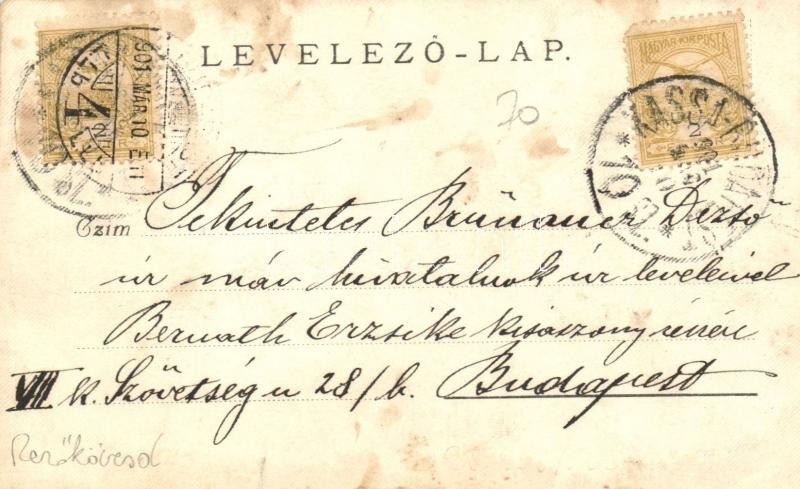 LEVELEZŐ-LAP.
MAGYAR KIR. POSTA
901 MÁR 10
70
Czim Tekintetes Brünauer Dezső
úr máv hivatalnok úr leveleivel
Bernath Erzsike kisasszony részére
VIII k. Szövetség u 28/b. Budapest
Mezőkövesd